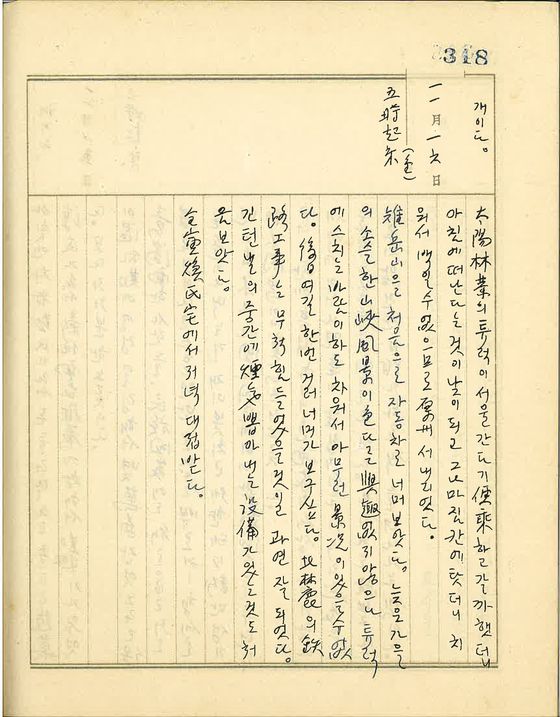 318
개이다。
一一月一六日
(金)
五時起床
太陽林業의 튜럭이 서울 간다기 便乘하고 갈까 했더니
아침에 떠난다는 것이 낮이 되고 그나마 짐칸에 탓더니 치
워서 백일 수 없으므로 原州서 내리었다。
雉岳山을 처음으로 자동차로 너머 보았다。 늦은 가을
의 소슬한 山峽風景이 色다른 興趣 없지 않으나 튜럭
에 스치는 바람이 하도 차워서 아무런 景況이 있을 수 없
다。 後日 여길 한번 걸어 너머가 보구 싶다。 의 鉄
路工事는 무척 힘들었을 것인 과연 잘 되었다。
긴 턴낼의 중간에 煙氣 뽑아내는 設備가 있는 것도 처
음 보았다。
氏宅에서 저녁 대접 받다。